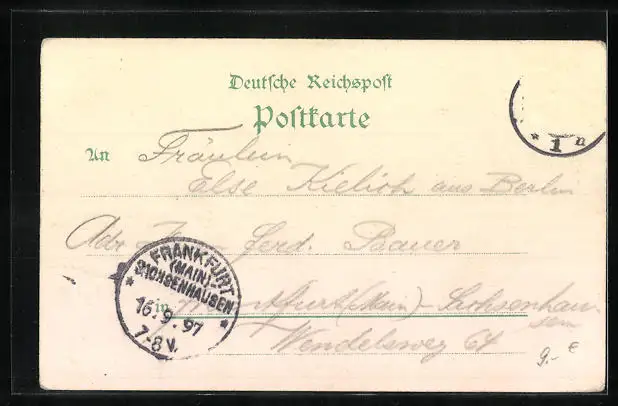 Deutsche Reichspost
Postkarte
An Fräulein
Else Kielich aus Berlin
Adr. Ferd. Bauer
in Frankfurt (Main) - Sachsenhau
sen
Wendelsweg 64
9.- €
FRANKFURT
(MAIN)
SACHSENHAUSEN
16.9.97
7-8 V.
* 1 n